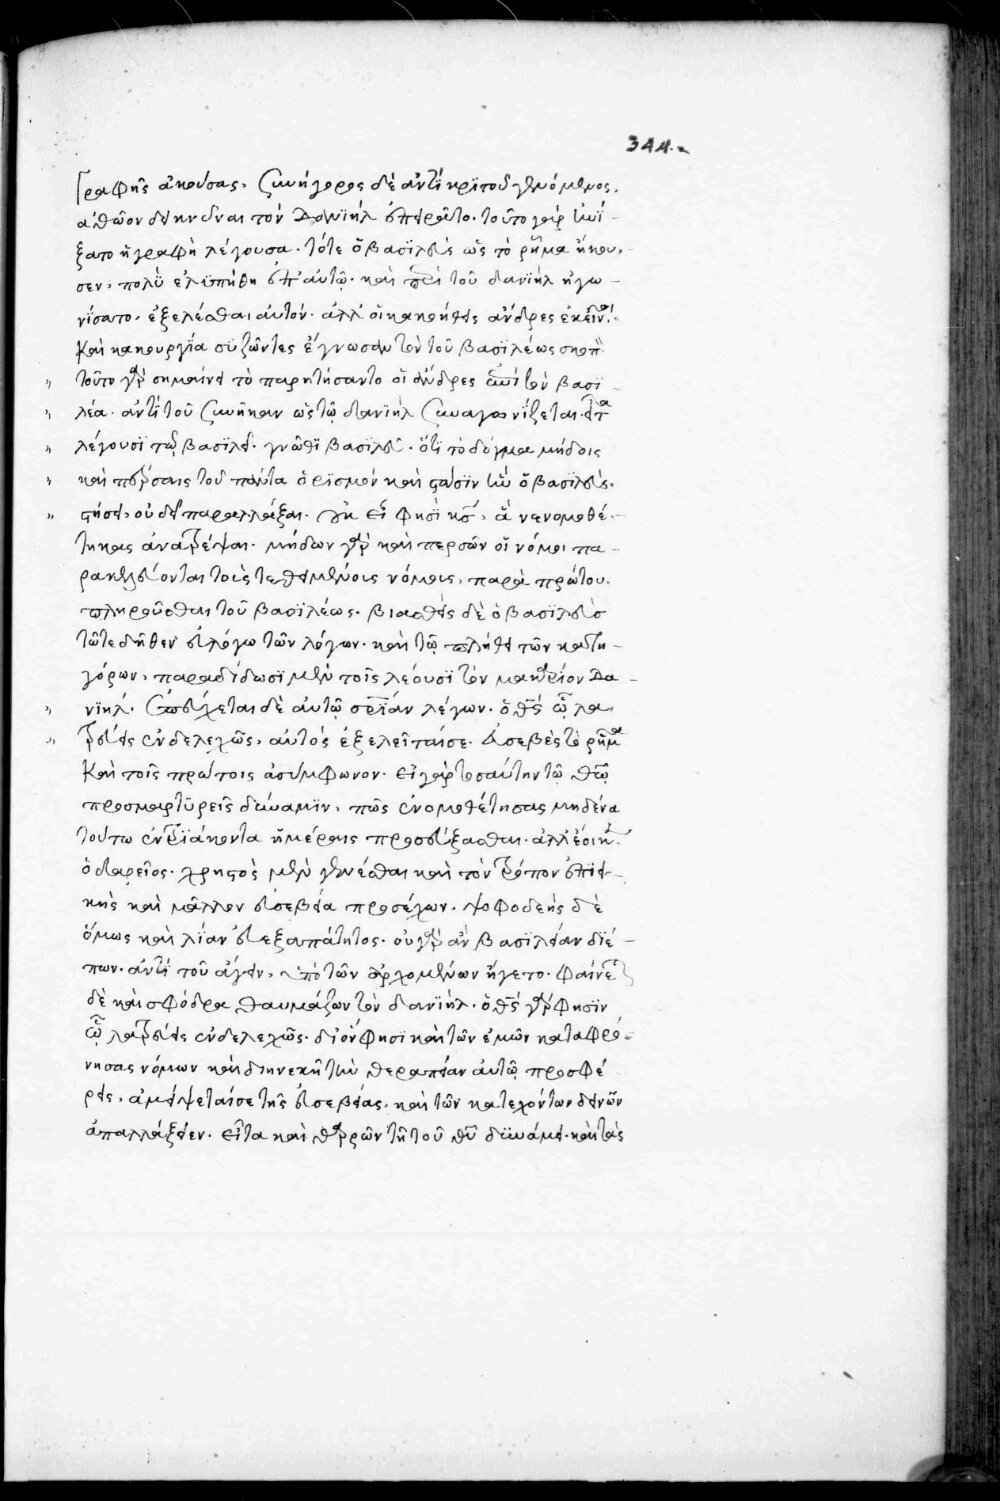 344.
Γραφῆς ἀκούσας. συνήγορος δὲ ἀντὶ κριτοῦ γενόμενος.
ἀθῶον δεῖν εἶναι τὸν Δανϊὴλ ἐπειρᾶτο. τοῦτο γὰρ ἠνί-
ξατο ἡ γραφὴ λέγουσα. τότε ὁ βασϊλεὺς ὡς τὸ ῥῆμα ἤκου-
σεν, πολὺ ἐλϋπήθη ἐπ' αὐτῷ. καὶ περὶ τοῦ δανϊὴλ ἠγω-
νίσατο, ἐξελέσθαι αὐτόν. ἀλλ' οἱ κακοήθεις ἄνδρες ἐκεῖνοι
καὶ κακουργϊα συζῶντες ἔγνωσαν τὸν τοῦ βασϊλέως σκοπὸν.
τοῦτο γὰρ σημαίνει τὸ παρητήσαντο οἱ ἄνδρες ἐκεῖνοι τὸν βασϊ-
λέα. ἀντὶ τοῦ συνῆκαν ὡς τῷ δανϊὴλ συναγωνίζεται. εἶτα
λέγουσϊ τῷ βασϊλεῖ. γνῶθϊ βασϊλεῦ. ὅτϊ τὸ δόγμα μήδοις
καὶ πέρσαις τοῦ πάντα ὁρϊσμὸν καὶ στάσϊν ἣν ὁ βασϊλεὺς
στήσει, οὐ δεῖ παραλλάξαι. οὐκ ἔνι φησὶ, ἃ νενομοθέ-
τηκας ἀνατρέψαι. μήδων γὰρ καὶ περσῶν οἱ νόμοι πα-
ρακελεύονται τοὺς τεθειμένους νόμους, παρὰ πρώτου
πληροῦσθαι τοῦ βασϊλέως. βιασθεὶς δὲ ὁ βασϊλεὺς
τότε δῆθεν εὐλόγω τῶν λόγων. καὶ τῷ πλήθει τῶν κατη-
γόρων, παραδίδωσϊ μὲν τοῖς λέουσϊ τὸν μακάριον Δα-
νϊήλ. ἐπεύχεται δὲ αὐτῷ σωτηρίαν λέγων. ὁ θς ᾧ λα-
τρεύεις ἐνδελεχῶς, αὐτὸς ἐξελεῖταί σε. ἀσεβὲς τὸ ῥῆμα
καὶ τοῖς πρώτοις ἀσύμφωνον. εἰ γὰρ τοσαύτην τῷ θεῷ
προσμαρτϋρεῖς δύναμϊν, πῶς ἐνομοθέτησας μηδένα
τούτω ἐν τρϊάκοντα ἡμέραις προσεύξασθαι. ἀλλ' ἔοικεν
ὁ δαρεῖος. χρηστὸς μὲν γενέσθαι καὶ τὸν τρόπον ἐπϊει-
κὴς καὶ μᾶλλον εὐσεβεία προσέχων. ψοφοδεὴς δὲ
ὅμως καὶ λίαν εὐεξαπάτητος. οὐ γὰρ ἂν βασϊλείαν διέ-
πων. ἀντὶ τοῦ ἄγειν, ὑπὸ τῶν ἀρχομένων ἤγετο. φαίνεται
δὲ καὶ σφόδρα θαυμάζων τὸν δανϊήλ. ὁ θς γάρ φησϊν
ᾧ λατρεύεις ἐνδελεχῶς. δι' ὃν φησϊ καὶ τῶν ἐμῶν καταφρο-
νήσας νόμων καὶ διηνεκῆ τὴν θεραπείαν αὐτῷ προσφέ-
ρεις, ἀμείψεταί σε τῆς εὐσεβείας. καὶ τῶν κατεχόντων δεινῶν
ἀπαλλάξειεν. εἶτα καὶ θαρρῶν τῇ τοῦ θῦ δϋνάμει. καὶ τὰς